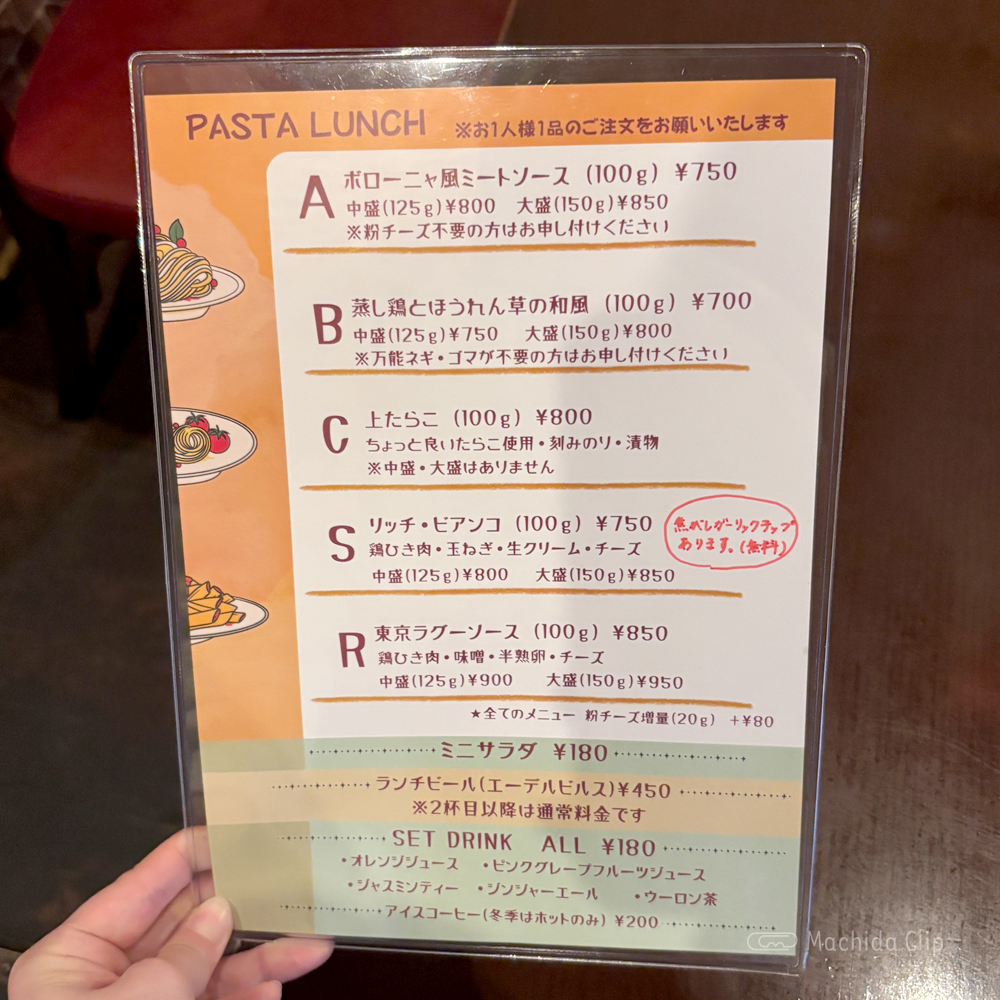 PASTA LUNCH ※お1人様1品のご注文をお願いいたします
A ボローニャ風ミートソース (100g) ¥750
中盛(125g)¥800 大盛(150g)¥850
※粉チーズ不要の方はお申し付けください
B 蒸し鶏とほうれん草の和風 (100g) ¥700
中盛(125g)¥750 大盛(150g)¥800
※万能ネギ・ゴマが不要の方はお申し付けください
C 上たらこ (100g) ¥800
ちょっと良いたらこ使用・刻みのり・漬物
※中盛・大盛はありません
S リッチ・ビアンコ (100g) ¥750
鶏ひき肉・玉ねぎ・生クリーム・チーズ
中盛(125g)¥800 大盛(150g)¥850
焦がしガーリックチップ
あります。(無料)
R 東京ラグーソース (100g) ¥850
鶏ひき肉・味噌・半熟卵・チーズ
中盛(125g)¥900 大盛(150g)¥950
★全てのメニュー 粉チーズ増量(20g) +¥80
ミニサラダ ¥180
ランチビール(エーデルピルス)¥450
※2杯目以降は通常料金です
SET DRINK ALL ¥180
・オレンジジュース ・ピンクグレープフルーツジュース
・ジャスミンティー ・ジンジャーエール ・ウーロン茶
アイスコーヒー(冬季はホットのみ) ¥200
Machida Clip